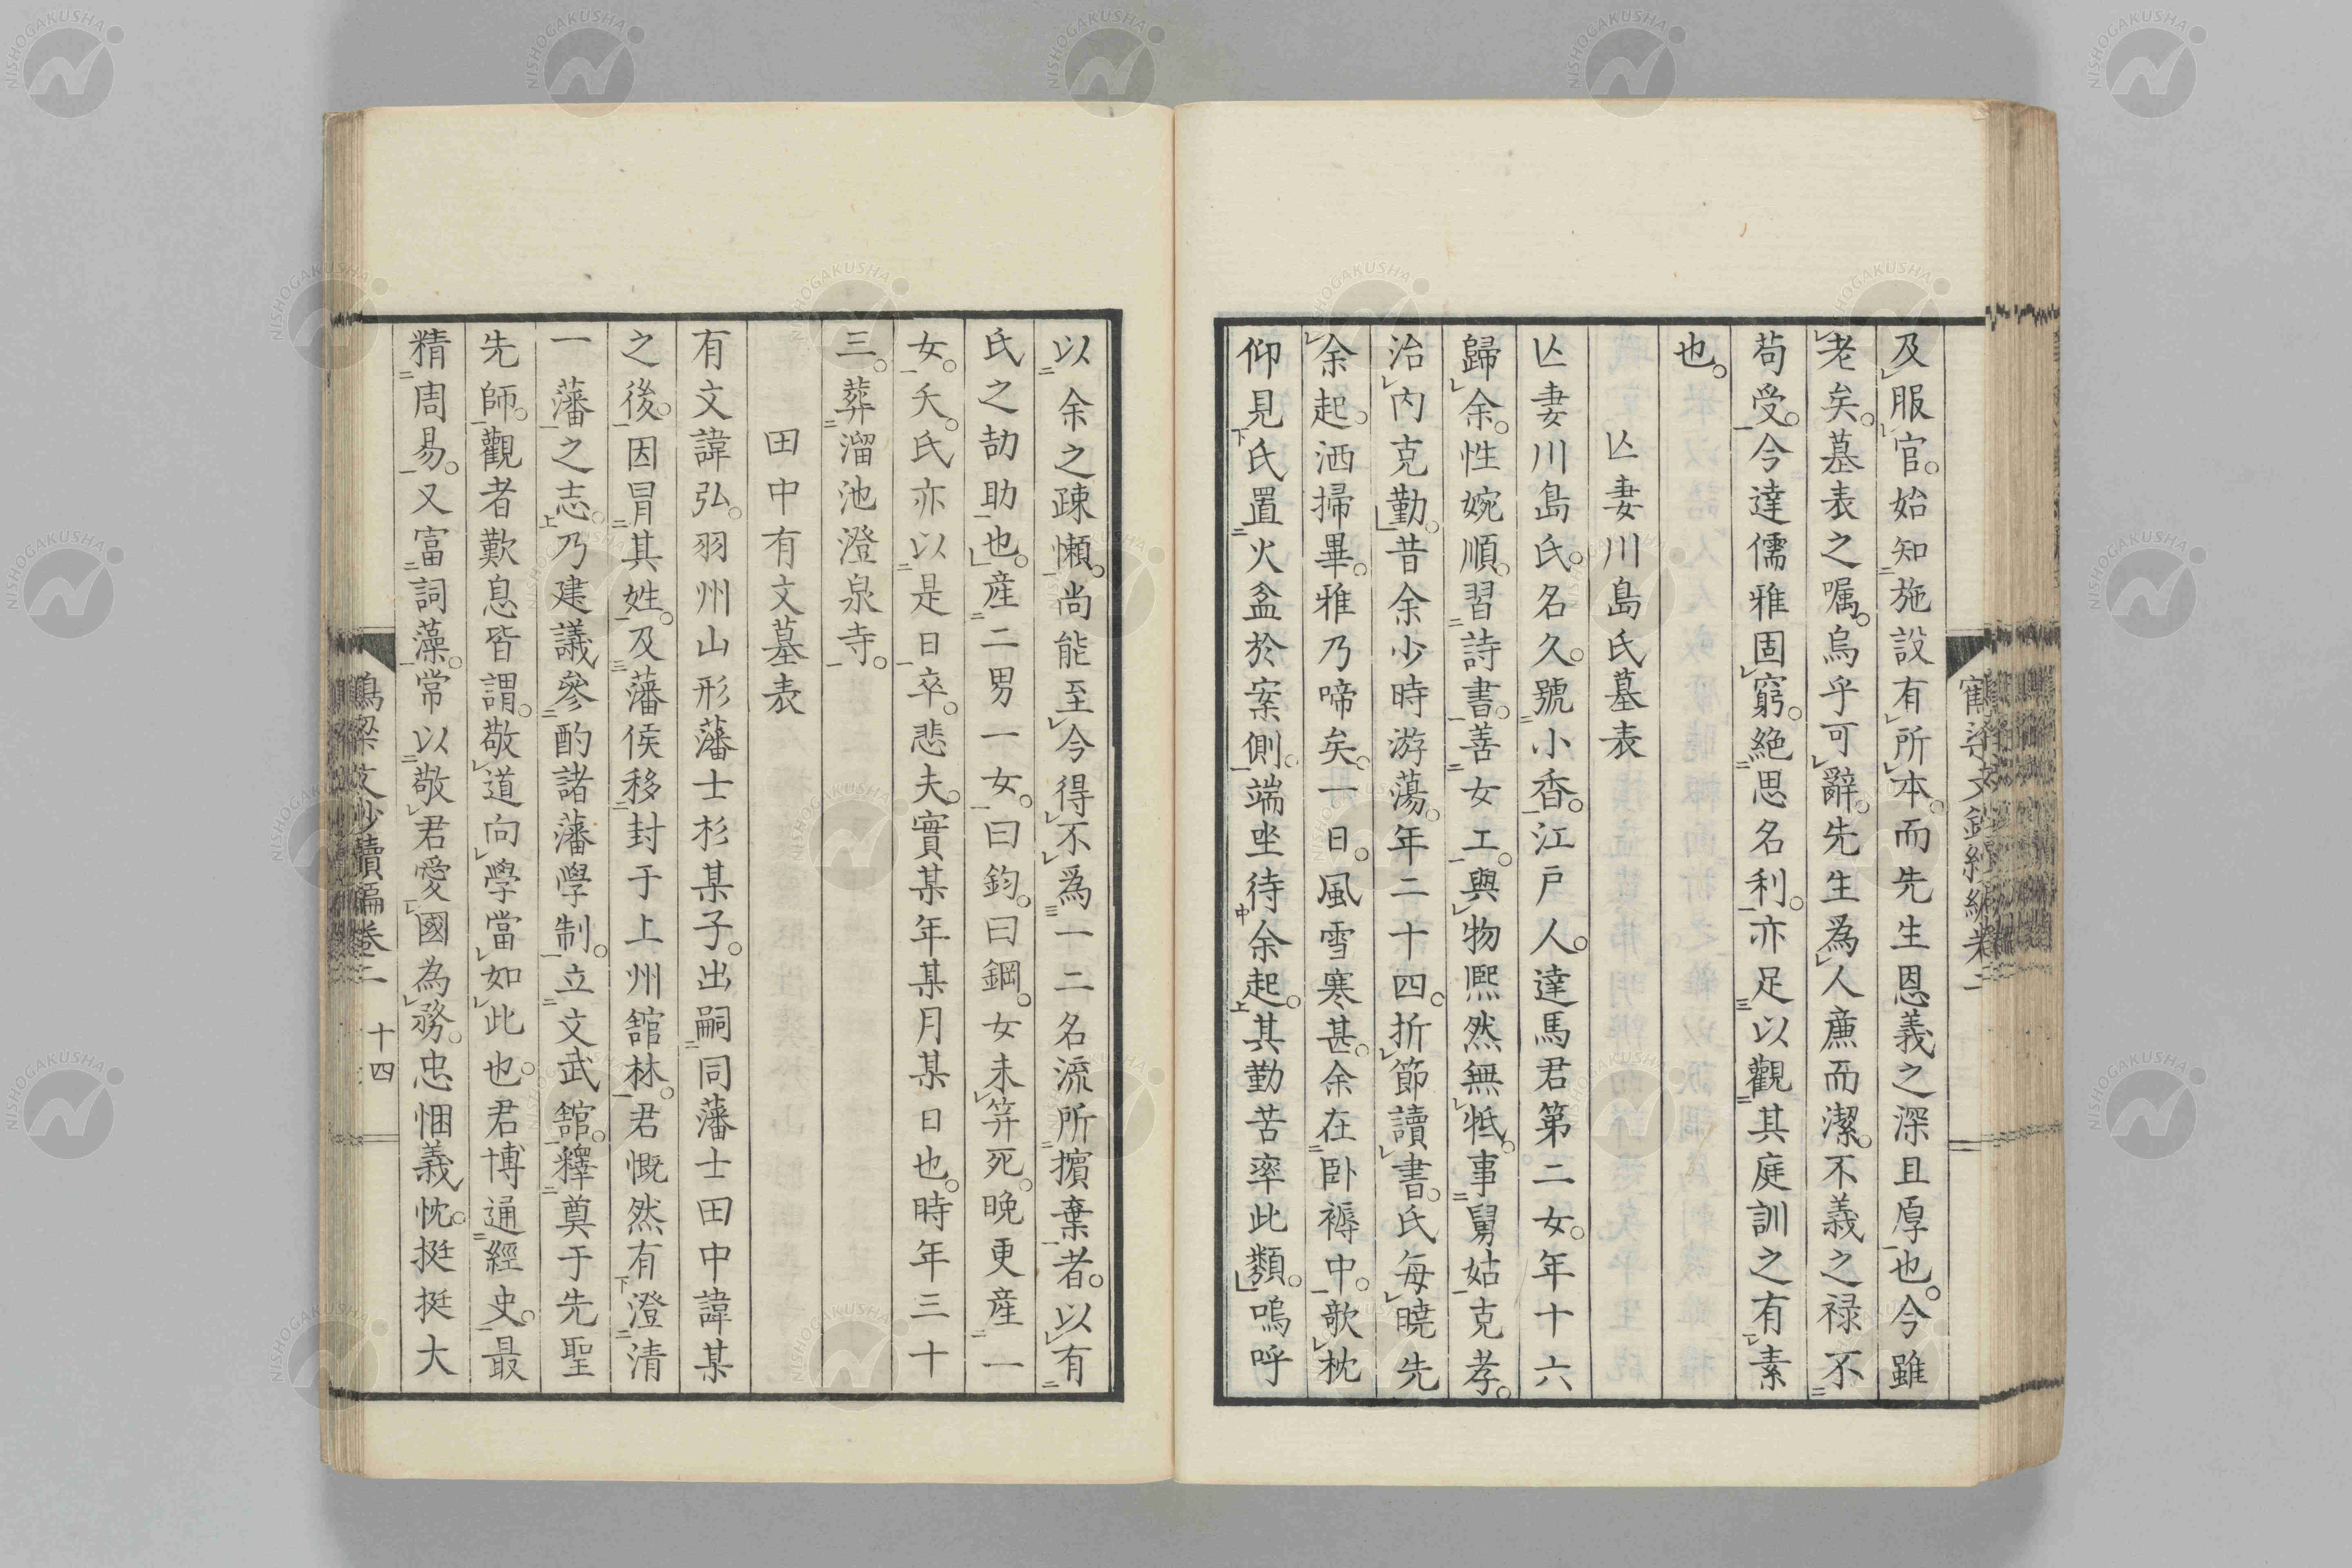 及服官。始知施設有所本。而先生恩義之深且厚也。今雖
老矣。墓表之嘱。烏乎可辭。先生為人廉而潔。不義之祿不
苟受。今達儒雅固窮。絶思名利。亦足以觀其庭訓之有素
也。
亾妻川島氏墓表
亾妻川島氏。名久。號小香。江戸人。達馬君第二女。年十六
歸余。性婉順。習詩書。善女工。與物熙然無牴。事舅姑克孝。
治内克勤。昔余少時游蕩。年二十四。折節讀書。氏毎曉先
余起。洒掃畢。雅乃啼矣。一日。風雪寒甚。余在卧褥中。欹枕
仰見氏置火盆於案側。端坐待余起。其勤苦率此類。嗚呼
以余之疎懶。尚能至今得不為一二名流所擯棄者。以有
氏之劼助也。産二男一女。曰鈞。曰鋼。女未笄死。晩更産一
女。夭。氏亦以是日卒。悲夫。實某年某月某日也。時年三十
三。葬溜池澄泉寺。
田中有文墓表
有文諱弘。羽州山形藩士杉某子。出嗣同藩士田中諱某
之後。因冒其姓。及藩侯移封于上州舘林。君慨然有澄清
一藩之志。乃建議參酌諸藩學制。立文武舘。釋奠于先聖
先師。觀者歎息皆謂。敬道向學當如此也。君博通經史。最
精周易。又富詞藻。常以敬君愛國為務。忠悃義忱。挺挺大
鶴梁文鈔續編巻二 十四